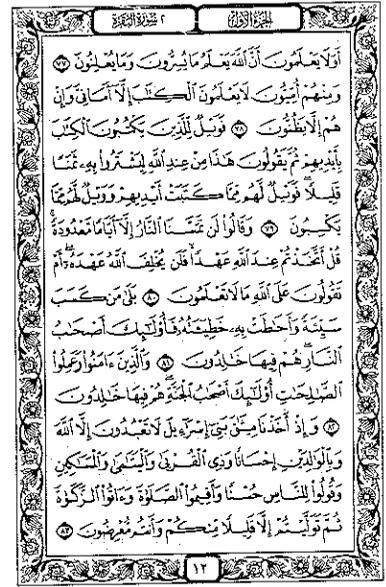 الجزء الأول
٢ سورة البقرة
أَوَلَا يَعْلَمُونَ أَنَّ اللَّهَ يَعْلَمُ مَا يُسِرُّونَ وَمَا يُعْلِنُونَ ٧٧
وَمِنْهُمْ أُمِّيُّونَ لَا يَعْلَمُونَ الْكِتَٰبَ إِلَّا أَمَانِيَّ وَإِنْ
هُمْ إِلَّا يَظُنُّونَ ٧٨ فَوَيْلٌ لِّلَّذِينَ يَكْتُبُونَ الْكِتَٰبَ
بِأَيْدِيهِمْ ثُمَّ يَقُولُونَ هَٰذَا مِنْ عِندِ اللَّهِ لِيَشْتَرُوا بِهِ ثَمَنًا
قَلِيلًا فَوَيْلٌ لَّهُم مِّمَّا كَتَبَتْ أَيْدِيهِمْ وَوَيْلٌ لَّهُم مِّمَّا
يَكْسِبُونَ ٧٩ وَقَالُوا لَن تَمَسَّنَا النَّارُ إِلَّا أَيَّامًا مَّعْدُودَةً
قُلْ أَتَّخَذْتُمْ عِندَ اللَّهِ عَهْدًا فَلَن يُخْلِفَ اللَّهُ عَهْدَهُ أَمْ
تَقُولُونَ عَلَى اللَّهِ مَا لَا تَعْلَمُونَ ٨٠ بَلَىٰ مَن كَسَبَ
سَيِّئَةً وَأَحَٰطَتْ بِهِ خَطِيٓـَٔتُهُ فَأُولَٰئِكَ أَصْحَٰبُ
النَّارِ هُمْ فِيهَا خَٰلِدُونَ ٨١ وَالَّذِينَ ءَامَنُوا وَعَمِلُوا
الصَّٰلِحَٰتِ أُولَٰئِكَ أَصْحَٰبُ الْجَنَّةِ هُمْ فِيهَا خَٰلِدُونَ
٨٢ وَإِذْ أَخَذْنَا مِيثَٰقَ بَنِي إِسْرَٰءِيلَ لَا تَعْبُدُونَ إِلَّا اللَّهَ
وَبِالْوَٰلِدَيْنِ إِحْسَانًا وَذِي الْقُرْبَىٰ وَالْيَتَٰمَىٰ وَالْمَسَٰكِينِ
وَقُولُوا لِلنَّاسِ حُسْنًا وَأَقِيمُوا الصَّلَوٰةَ وَءَاتُوا الزَّكَوٰةَ
ثُمَّ تَوَلَّيْتُمْ إِلَّا قَلِيلًا مِّنكُمْ وَأَنتُم مُّعْرِضُونَ ٨٣
١٢